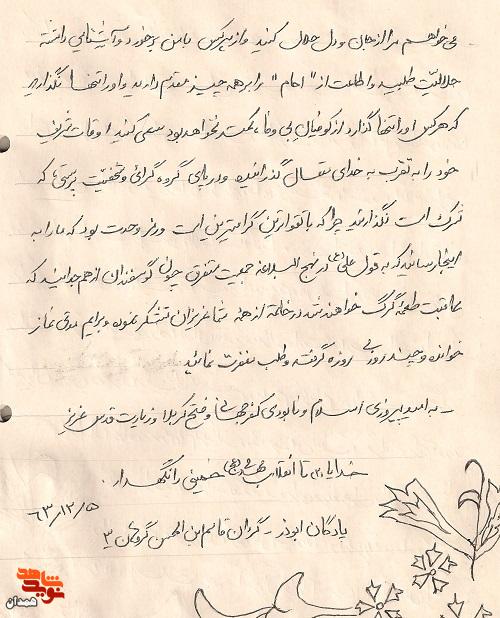 می‌خواهم مرا از جان و دل حلال کنید و از هر کس با من برخورد و آشنایی داشته
حلالیّت طلبید و اطاعت از "امام" را بر همه چیز مقدم دارید و او را تنها نگذارید
که هرکس او را تنها گذارد از کوفیان بی وفا، کمتر نخواهد بود سعی کنید اوقات شریف
خود را به تقرب به خدای متعال گذرانیده و در پای گروه گرائی و شخصیّت پرستی که
شرک است نگذارید چرا که با تقواترین گرامیترین است و رمز وحدت بود که ما را به
اینجا رسانید که به قول علی (ع) در نهج البلاغه جمعیت متفرق چونان گوسفندان از هم جدایند که
عاقبت طعمهٔ گرگ خواهند شد در خاتمه از همهٔ شما عزیزان تشکر نموده و برایم مدتی نماز
خوانده و چند روزی روزه گرفته و طلب مغفرت نمائید
ـ به امید پیروزی اسلام و نابودی کفر جهانی و فتح کربلا و زیارت قدس عزیز
خدایا خدایا تا انقلاب مهدی (عج) خمینی را نگهدار.
۶۳/۱۲/۵
پادگان ابوذر ـ گردان قاسم ابن الحسن گروهان ۳
شاهد
نوید
همدان